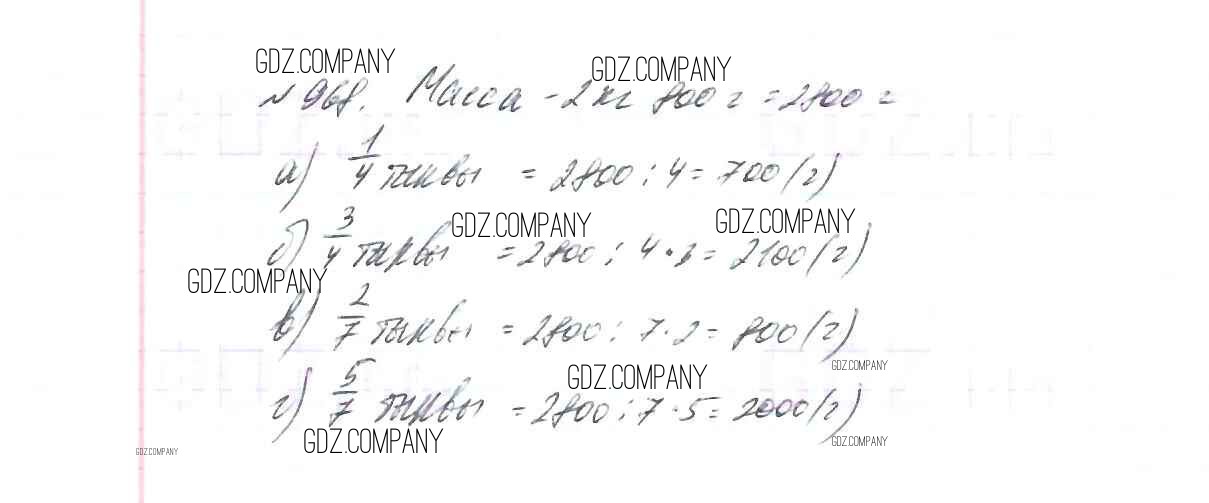 GDZ.COMPANY GDZ.COMPANY
№ 968. Масса - 2 кг 800 г = 2800 г
а) 1/4 тыквы = 2800 : 4 = 700 (г)
GDZ.COMPANY GDZ.COMPANY
б) 3/4 тыквы = 2800 : 4 · 3 = 2100 (г)
GDZ.COMPANY
в) 2/7 тыквы = 2800 : 7 · 2 = 800 (г)
GDZ.COMPANY GDZ.COMPANY
г) 5/7 тыквы = 2800 : 7 · 5 = 2000 (г)
GDZ.COMPANY GDZ.COMPANY
GDZ.COMPANY